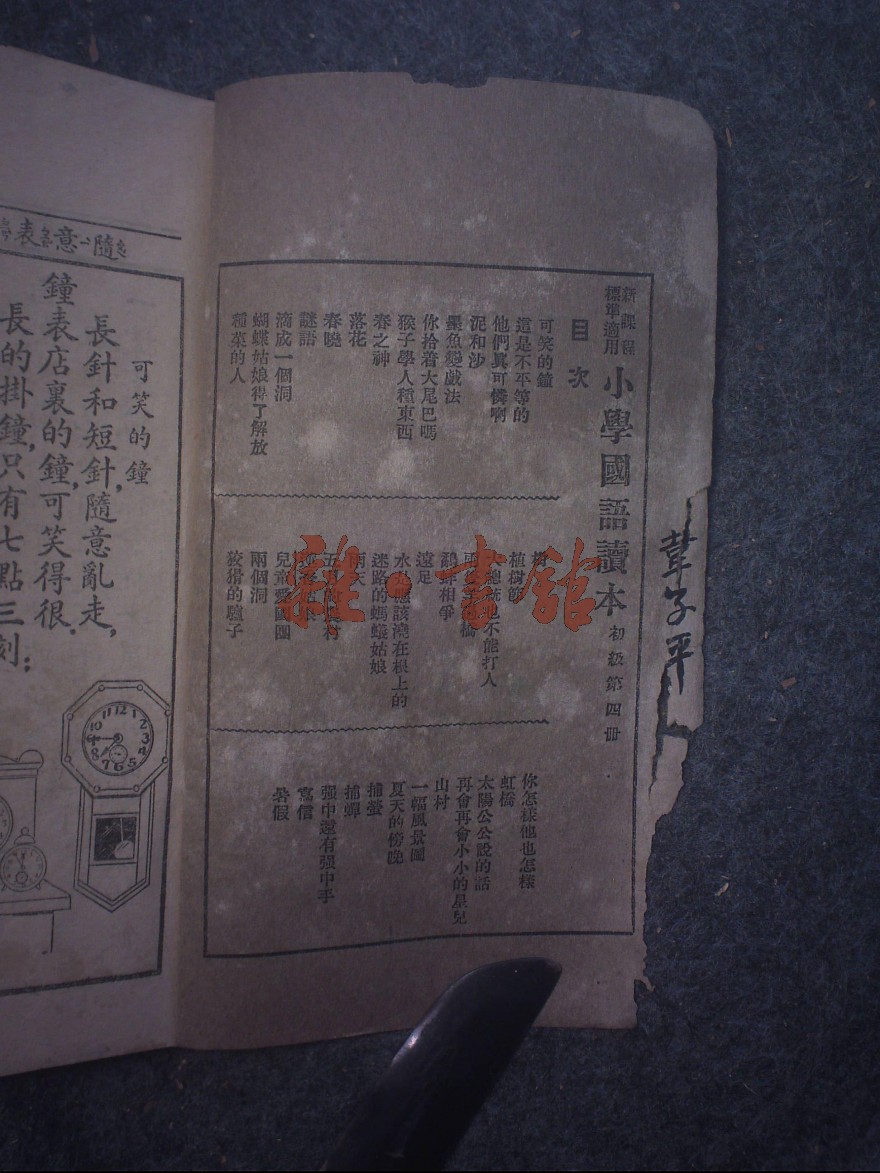 新課程
標準適用
小學國語讀本
初級第四冊
目次
可笑的鐘
這是不平等的
他們眞可憐啊
泥和沙
墨魚變戲法
你拾着大尾巴嗎
猴子學人種東西
春之神
落花
春曉
謎語
滴成一個洞
蝴蝶姑娘得了解放
種菜的人
植樹節
總統也不能打人
橋
鷸蚌相爭
遠足
水是應該澆在根上的
迷路的螞蟻姑娘
雨天
村
兒童愛國團
兩個洞
狡猾的驢子
你怎樣他也怎樣
虹橋
太陽公公說的話
再會再會小小的星兒
山村
一幅風景圖
夏天的傍晚
捕螢
捕蟬
强中還有强中手
寫信
暑假
韋子平
雜·書館
隨意表
可笑的鐘
長針和短針,隨意亂走,
鐘表店裏的鐘,可笑得很.
長的掛鐘,只有七點三刻;
12
1
2
3
4
5
6
7
8
9
10
11